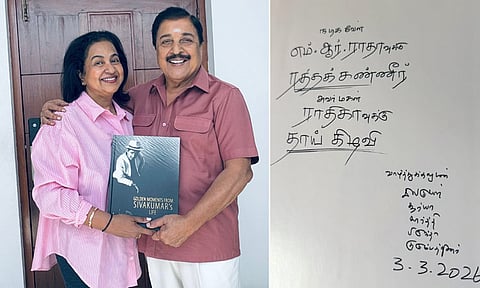 GOLDEN MOMENTS FROM
SIVAKUMAR'S
LIFE
நடிகவேள்
எம். ஆர். ராதாவுக்கு
ரத்தக் கண்ணீர்
அவர் மகள்
ராதிகாவுக்கு
தாய் கிழவி
வாழ்த்துக்களுடன்
சூர்யா
கார்த்தி
3.3.2026